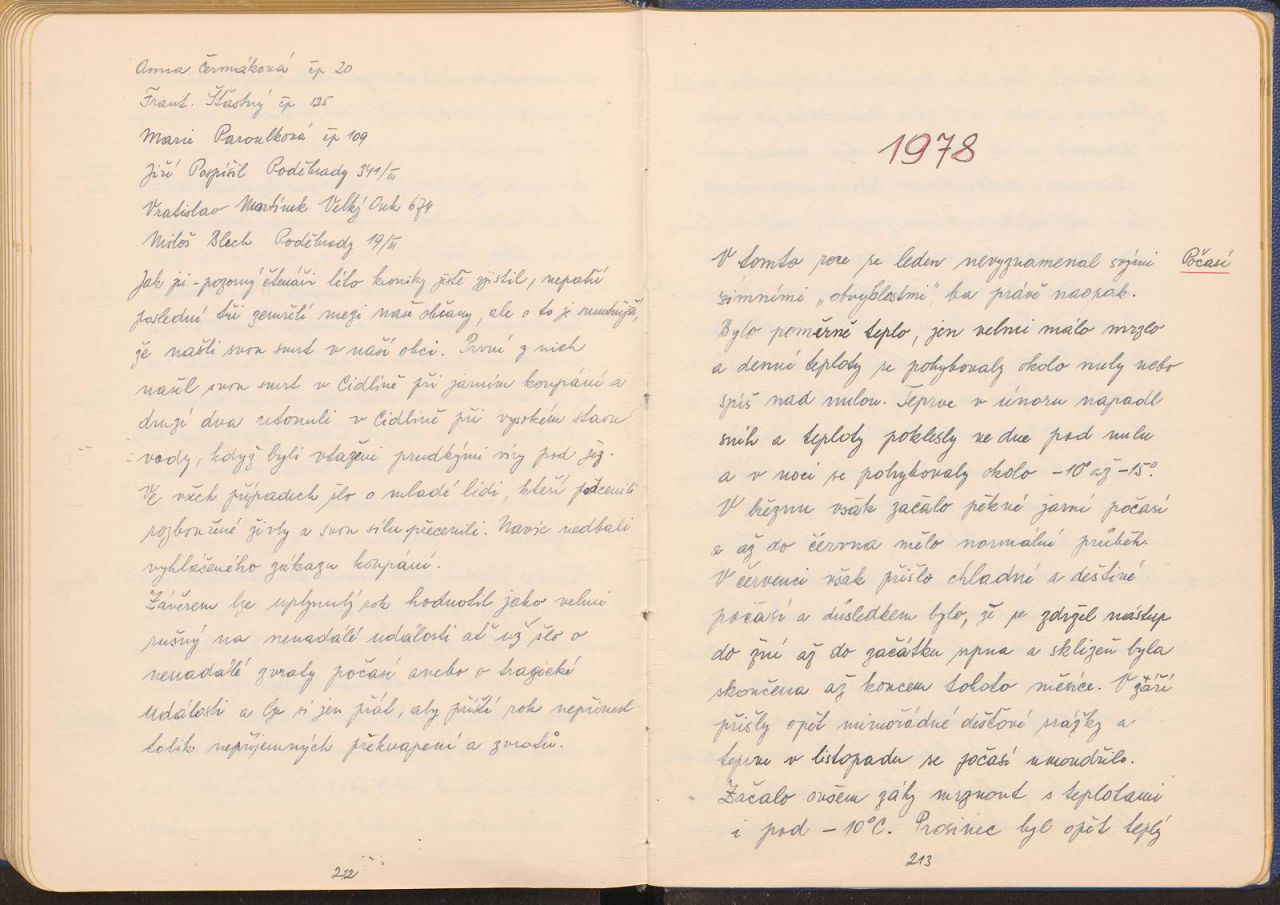 Anna Čermáková čp 20
Frant. Šťastný čp 135
Marie Paroulková čp 109
Jiří Pospíšil Poděbrady 341/III
Vratislav Martínek Velký Osek 674
Miloš Blech Poděbrady 19/III
Jak již pozorný čtenář této kroniky jistě zjistil, nepatří
poslední tři zemřelí mezi naše občany, ale o to je smutnější,
že našli svou smrt v naší obci. První z nich
našel svou smrt v Cidlině při jarním koupání a
druzí dva utonuli v Cidlině při vysokém stavu
vody, když byli vtaženi prudkými víry pod jez.
Ve všech případech šlo o mladé lidi, kteří podcenili
rozbouřené živly a svou sílu přecenili. Navíc nedbali
vyhlášeného zákazu koupání.
Závěrem lze uplynulý rok hodnotit jako velmi
rušný na nenadálé události ať už šlo o
nenadálé zvraty počasí anebo o tragické
události a lze si jen přát, aby příští rok nepřinesl
tolik nepříjemných překvapení a zvratů.
212
1978
V tomto roce se leden nevyznamenal svými Počasí
zimními „obvyklostmi", ba právě naopak.
Bylo poměrně teplo, jen velmi málo mrzlo
a denní teploty se pohybovaly okolo nuly nebo
spíš nad nulou. Teprve v únoru napadl
sníh a teploty poklesly ve dne pod nulu
a v noci se pohybovaly okolo -10° až -15°.
V březnu však začalo pěkné jarní počasí
a až do června mělo normální průběh.
V červenci však přišlo chladné a deštivé
počasí a důsledkem bylo, že se zdržel nástup
do žní až do začátku srpna a sklizeň byla
skončena až koncem tohoto měsíce. V září
přišly opět mimořádné dešťové srážky a
teprve v listopadu se počasí umoudřilo.
Začalo ovšem záhy mrznout s teplotami
i pod -10°C. Prosinec byl opět teplý
213